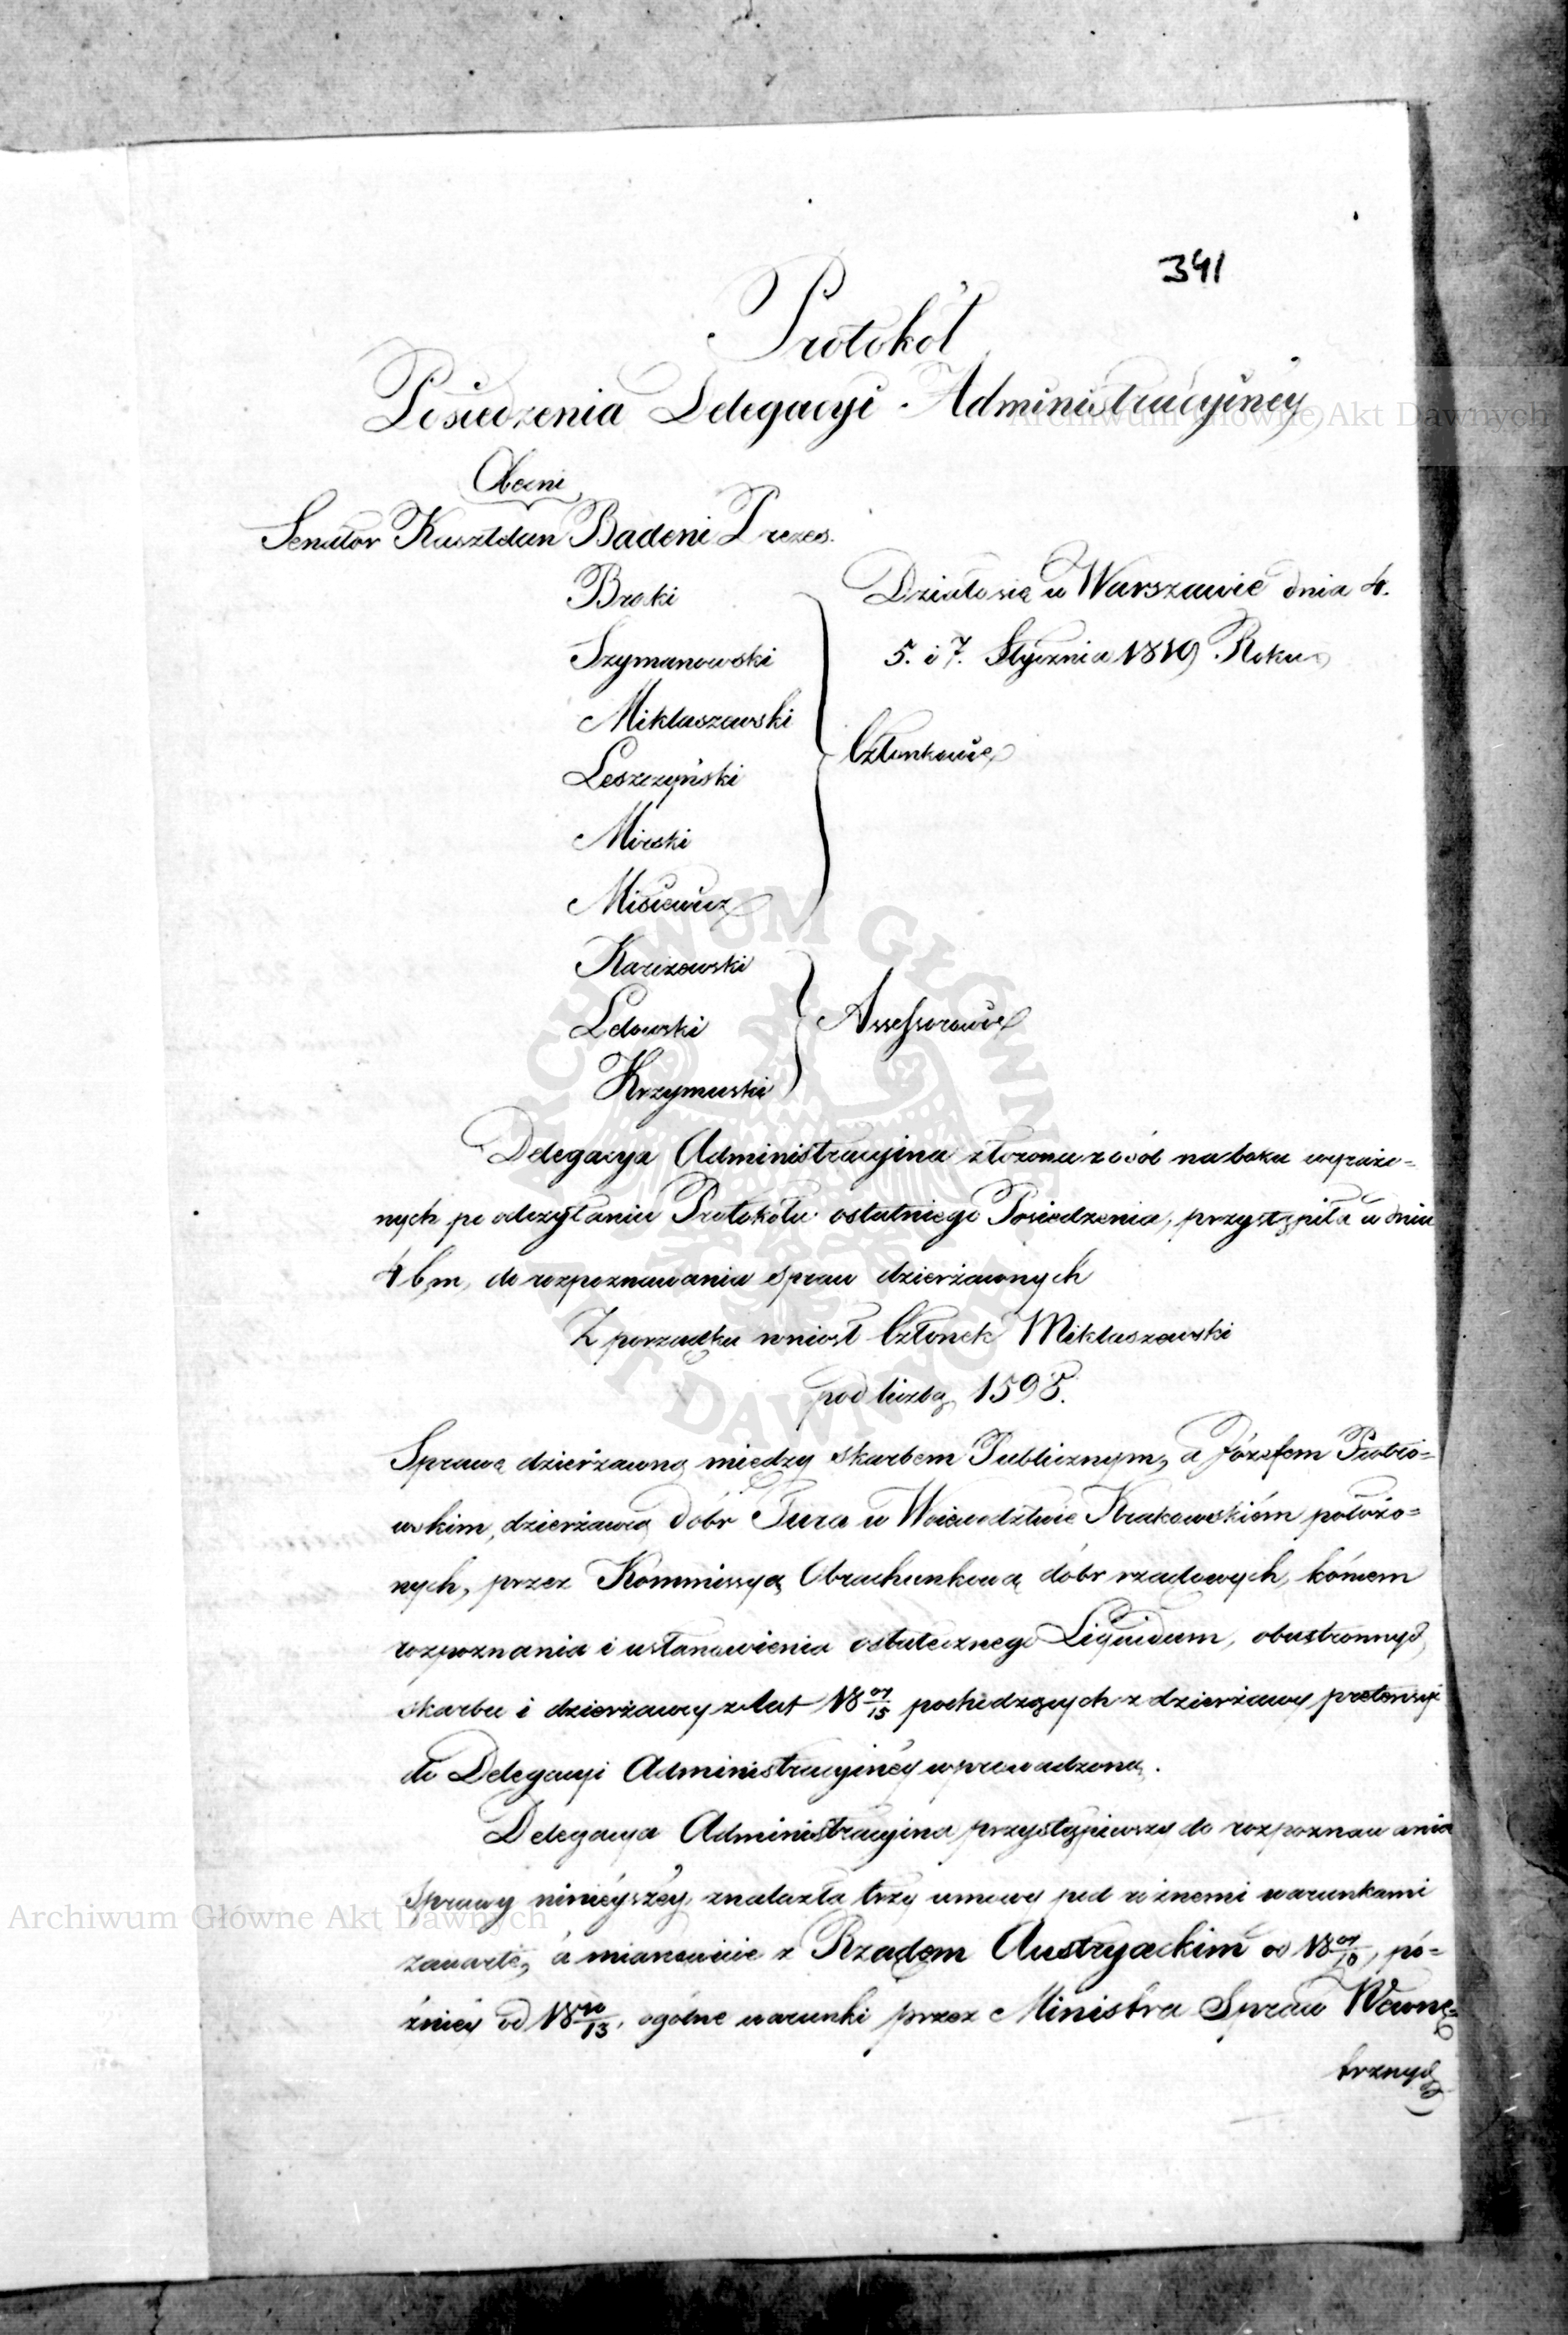 341
Protokół
Posiedzenia Delegacyi Administracyiney
Obecni
Senator Kasztelan Badeni Prezes.
Działo się w Warszawie dnia 4.
5. i 7. Stycznia 1819 Roku
Bzoki
Szymanowski
Miklaszewski
Leszczyński
Mirski
Misiewicz
Członkowie
Karczewski
Ledowski
Krzymuski
Assessorowie
Delegacya Administracyina złożona z osób na boku wyrażo=
nych po odczytaniu Protokółu ostatniego Posiedzenia, przystąpiła w dniu
4 b,m, do rozpoznawania spraw dzierżawnych
Z porządku wniosł Członek Miklaszewski
pod liczbą 1595.
Sprawę dzierżawną między skarbem Publicznym, a Józefem Piotro=
wskim, dzierżawcą dóbr Jura w Woiewodztwie Krakowskiém położo=
nych, przez Kommissyą Obrachunkową dóbr rządowych, końcem
rozpoznania i ustanowienia ostatecznego Liquidum, obustronnych
skarbu i dzierżawcy z lat 18 07/15 pochodzących z dzierżawy pretensyi
do Delegacyi Administracyiney wprowadzoną.
Delegacya Administracyina przystąpiwszy do rozpoznawania
Sprawy ninieyszey, znalazła trzy umowy pod rożnemi warunkami
zawarte, a mianowicie z Rządem Austryackim od 18 07/10, po=
źniey od 18 10/13, ogólne warunki przez Ministra Spraw Wewnę=
trznych
Archiwum Główne Akt Dawnych
Archiwum Główne Akt Dawnych
ARCHIWUM GŁÓWNE AKT DAWNYCH